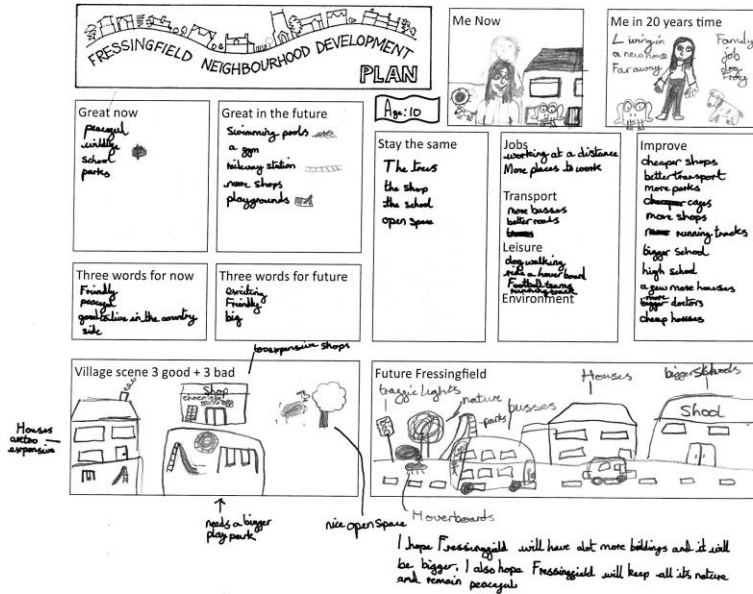 FRESSINGFIELD NEIGHBOURHOOD DEVELOPMENT
PLAN
Me Now
Me in 20 years time
Living in
a new house
Far away
Family
job
dog
Frog
Age: 10
Great now
peaceful
wildlife
school
parks
Great in the future
Swimming pools
a gym
railway station
more shops
playgrounds
Stay the same
The trees
the shop
the school
open space
Jobs
working at a distance
More places to work
Transport
more busses
better roads
Leisure
dog walking
ride a hover board
Football teams
running track
Environment
Improve
cheaper shops
better transport
more parks
cheaper cages
more shops
more running tracks
bigger school
high school
a few more housses
more
bigger doctors
cheap housses
Three words for now
Friendly
peaceful
good to live in the country
side
Three words for future
exciting
Friendly
big
Village scene 3 good + 3 bad
to expensive shops
Shop
Houses
are too
expensive
needs a bigger
play park
nice open space
Future Fressingfield
traffic lights
nature
parks
busses
Houses
bigger Schools
Shool
Hoverboards
I hope Fressingfield will have alot more bildings and it will
be bigger. I also hope Fressingfield will keep all its nature
and remain peaceful